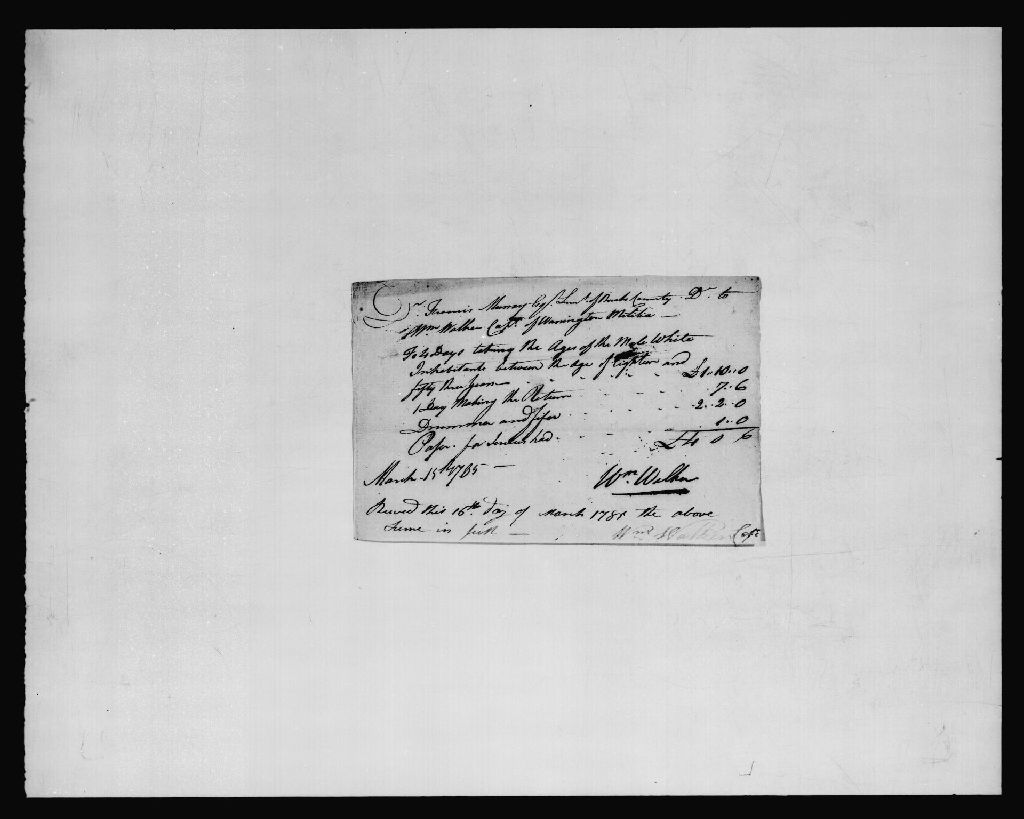 Dr. Francis Murray Esqr. Lieut. of Bucks County Dr. to
Wm Walker Capt. of Warrington Militia —
To 4 Days taking the Ages of the Male White
Inhabitants between the age of Eighteen and
fifty three years - - - - £1..10..0
1 Day Making the Return - - - - 7..6
Drummer and fifer - - - - 2..2..0
Paper for Inrolled - - - - 1..0
£4 0 6
March 15th 1785 — Wm. Walker
Receved this 16th Day of March 1785 the above
Sume in full — Wm Walker Capt